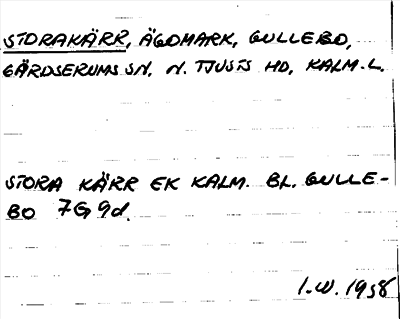 STORAKÄRR, ÄGOMARK, GULLEBO,
GÄRDSERUMS SN, N. TJUSTS HD, KALM. L.
STORA KÄRR EK KALM. BL. GULLE-
BO 7G 9d.
I.W. 1958